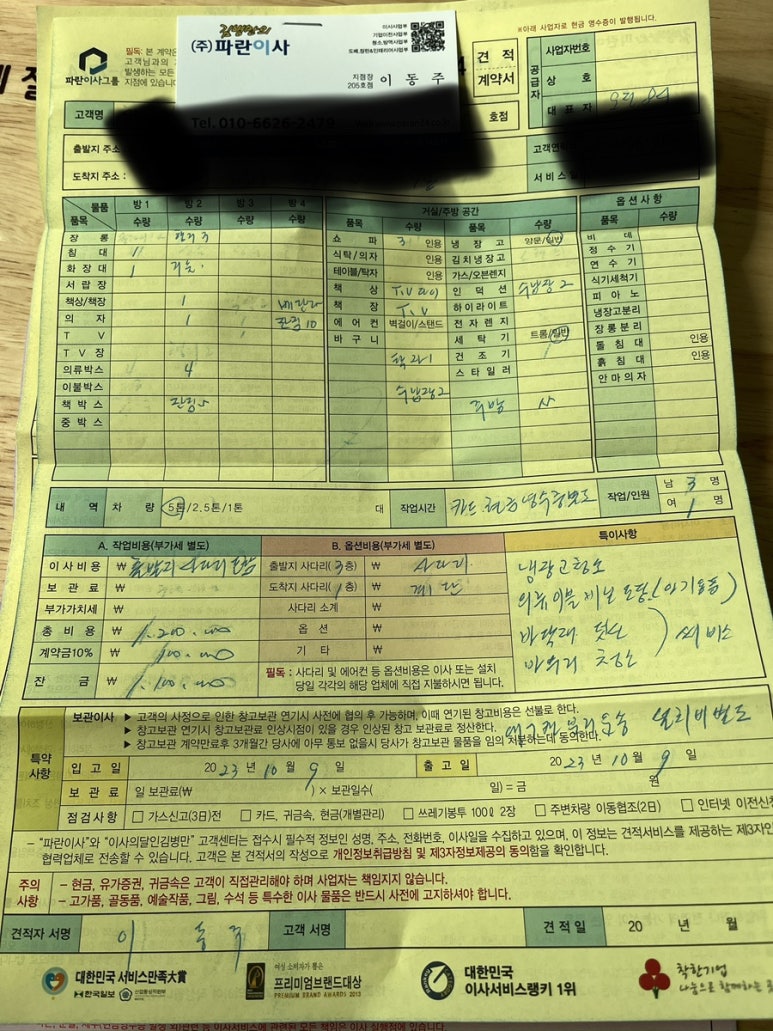 ※아래 사업자로 현금 영수증이 발행됩니다.
파란이사그룹
필독: 본 계약은
고객님과의
발생하는 모든
지점에 있습니다
(주) 파란이사
이사사업부
기업이전사업부
청소,방역사업부
지점장
205호점
이 동 주
Tel. 010-6626-2479
견 적
계약서
공급자
사업자번호
상 호
대 표 자
고객명
호점
출발지 주소
고객연락
도착지 주소 :
서비스일
물품
품목
방 1
방 2
방 3
방 4
수량 수량 수량 수량
거실/주방 공간
품목 수량 품목 수량
옵션사항
품목 수량
장 롱
침 대 1
화 장 대 1
서 랍 장
책상/책장 1
의 자 1
T V
T V 장
의류박스 4
이불박스
책 박 스
중 박 스
쇼 파 3 인용
식탁/의자 인용
테이블/탁자 인용
책 상
책 장 T.V
에 어 컨 벽걸이/스탠드
바 구 니
수납장2
냉 장 고 양문/일반
김치냉장고
가스/오븐렌지
인 덕 션 수납장 2
하이라이트
전자렌지
세 탁 기 트롬/일반
건 조 기
스타일러
주방
비 데
정 수 기
연 수 기
식기세척기
피 아 노
냉장고분리
장롱분리
돌 침 대 인용
흙 침 대 인용
안마의자
내 역 차 량 5톤/2.5톤/1톤 대 작업시간 카드 현금영수증별도 작업/인원 남 3 명
여 1 명
A. 작업비용(부가세 별도)
이사비용 ₩ 출발지 사다리 포함
보 관 료 ₩
부가가치세 ₩
총 비 용 ₩ 1.200.000
계약금10% ₩ 100.000
잔 금 ₩ 1.100.000
B. 옵션비용(부가세 별도)
출발지 사다리( 3 층) ₩ 사다리
도착지 사다리( 1 층) ₩ 계단
사다리 소계 ₩
옵 션 ₩
기 타 ₩
필독 : 사다리 및 에어컨 등 옵션비용은 이사 또는 설치
당일 각각의 해당 업체에 직접 지불하시면 됩니다.
특이사항
냉장고청소
의류 이불 비닐 포장 (아기용품)
바닥 청소
서비스
특약
사항
보관이사 ▶ 고객의 사정으로 인한 창고보관 연기시 사전에 협의 후 가능하며, 이때 연기된 창고비용은 선불로 한다.
▶ 창고보관 연기시 창고보관료 인상시점이 있을 경우 인상된 창고 보관료로 정산한다.
▶ 창고보관 계약만료후 3개월간 당사에 아무 통보 없을시 당사가 창고보관 물품을 임의 처분하는데 동의한다.
설치비별도
입 고 일 2023 년 10 월 9 일 출 고 일 2023 년 10 월 9 일
보 관 료 일 보관료(₩ ) × 보관일수( 일) = 금 원
점검사항 □ 가스신고(3일)전 □ 카드, 귀금속, 현금(개별관리) □ 쓰레기봉투 100ℓ 2장 □ 주변차량 이동협조(2일) □ 인터넷 이전신청
- “파란이사”와 “이사의달인김병만” 고객센터는 접수시 필수적 정보인 성명, 주소, 전화번호, 이사일을 수집하고 있으며, 이 정보는 견적서비스를 제공하는 제3자인
협력업체로 전송할 수 있습니다. 고객은 본 견적서의 작성으로 개인정보취급방침 및 제3자정보제공의 동의함을 확인합니다.
주의
사항
- 현금, 유가증권, 귀금속은 고객이 직접관리해야 하며 사업자는 책임지지 않습니다.
- 고가품, 골동품, 예술작품, 그림, 수석 등 특수한 이사 물품은 반드시 사전에 고지하셔야 합니다.
견적자 서명 이 동 주 고객 서명 견적일 20 년 월
대한민국 서비스만족大賞
한국일보
여성 소비자가 뽑은
프리미엄브랜드대상
PREMIUM BRAND AWARDS 2013
대한민국
이사서비스랭키 1위
착한기업
나눔으로 함께하는